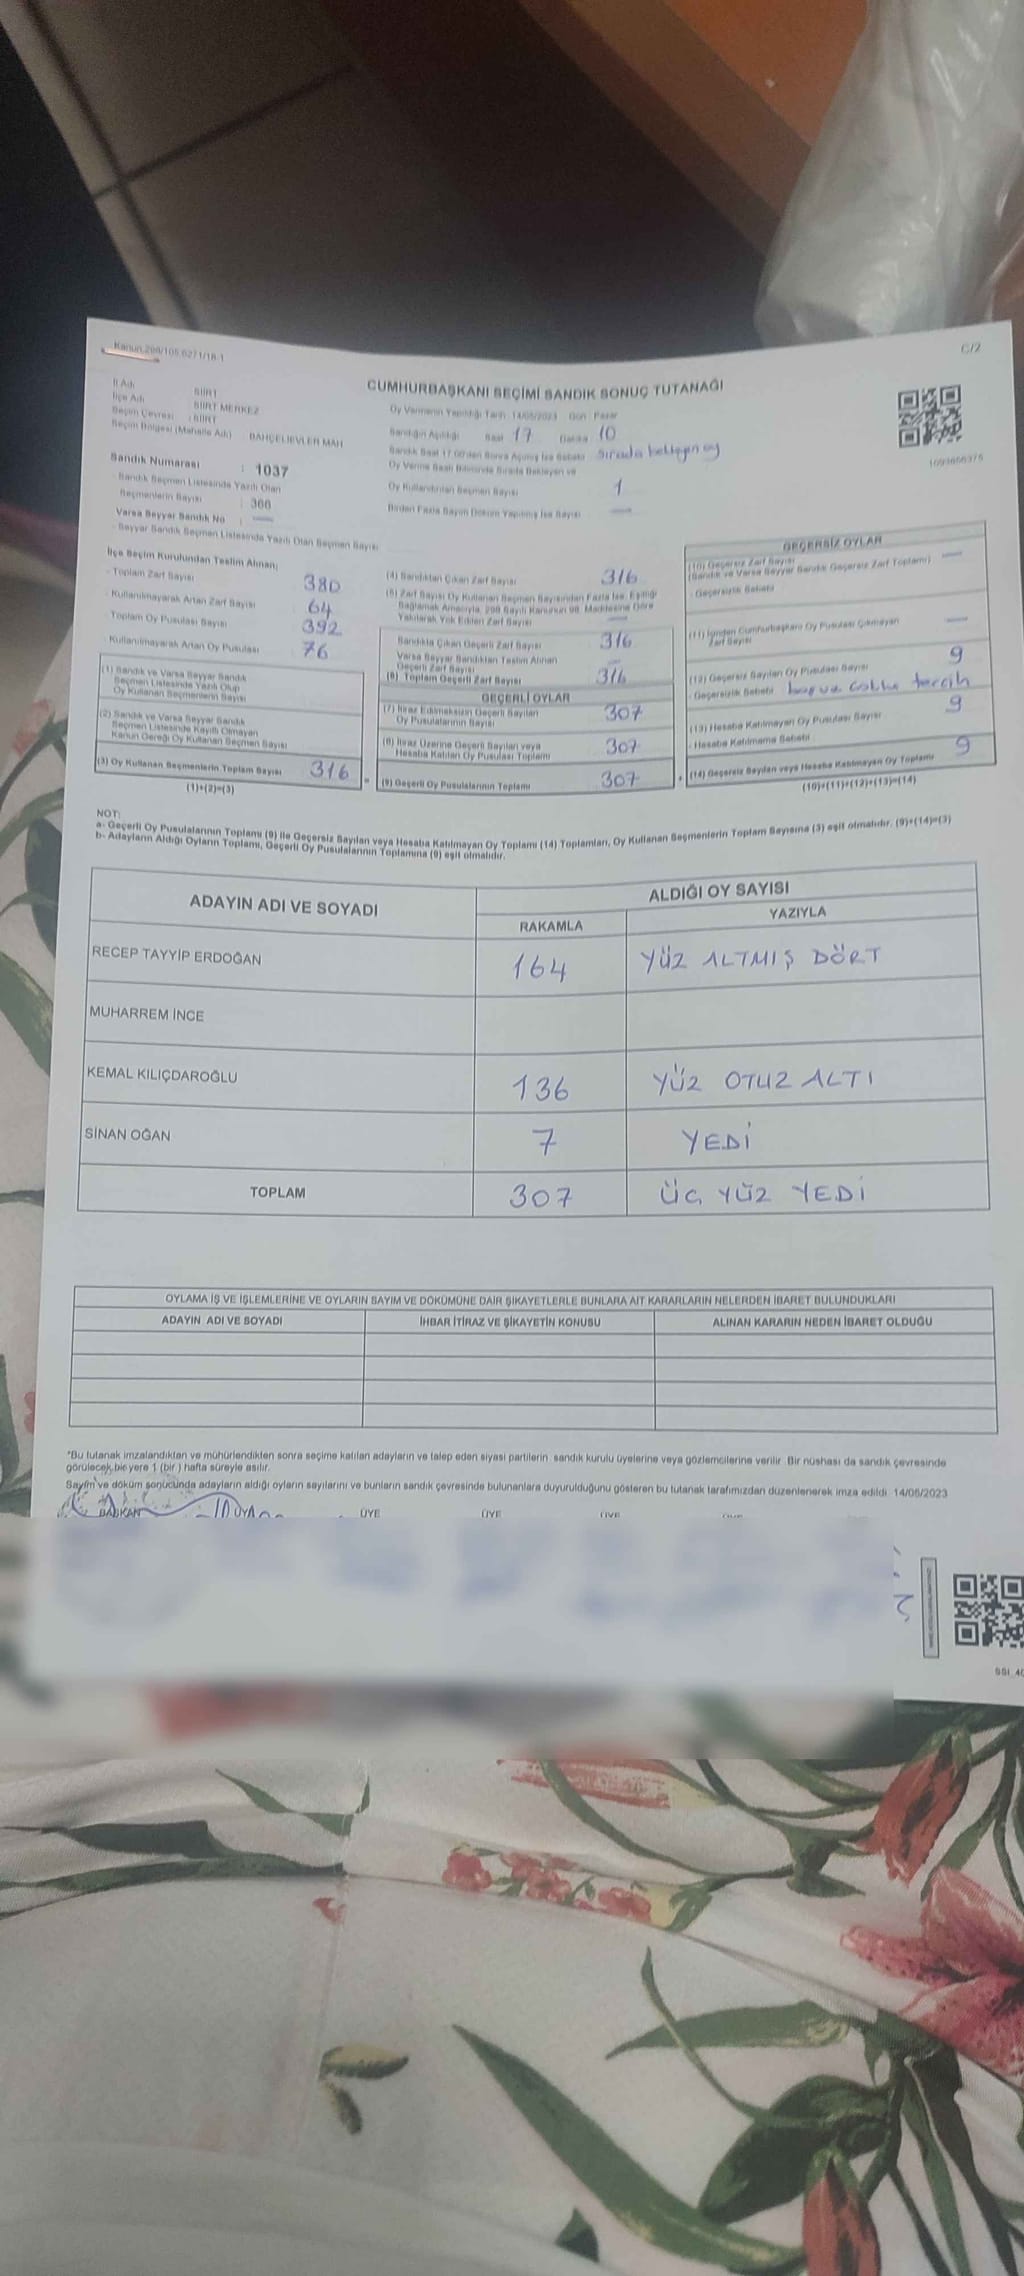 Kanun 298/105,6271/18-1
C/2
CUMHURBAŞKANI SEÇİMİ SANDIK SONUÇ TUTANAĞI
İl Adı : SİİRT
İlçe Adı : SİİRT MERKEZ
Seçim Çevresi : SİİRT
Seçim Bölgesi (Mahalle Adı) : BAHÇELİEVLER MAH
Oy Vermenin Yapıldığı Tarih 14/05/2023 Gün Pazar
Sandığın Açıldığı Saat 17 Dakika 10
Sandık Saat 17.00'den Sonra Açılmış İse Sebebi Sırada bekleyen oy
Oy Verme Saati Bitiminde Sırada Bekleyen ve
Oy Kullandırılan Seçmen Sayısı 1
Birden Fazla Sayım Döküm Yapılmış İse Sayısı —
1093656375
Sandık Numarası : 1037
- Sandık Seçmen Listesinde Yazılı Olan
Seçmenlerin Sayısı : 366
Varsa Seyyar Sandık No : —
- Seyyar Sandık Seçmen Listesinde Yazılı Olan Seçmen Sayısı
İlçe Seçim Kurulundan Teslim Alınan;
- Toplam Zarf Sayısı 380
- Kullanılmayarak Artan Zarf Sayısı 64
- Toplam Oy Pusulası Sayısı 392
- Kullanılmayarak Artan Oy Pusulası 76
(1) Sandık ve Varsa Seyyar Sandık
Seçmen Listesinde Yazılı Olup
Oy Kullanan Seçmenlerin Sayısı
(2) Sandık ve Varsa Seyyar Sandık
Seçmen Listesinde Kayıtlı Olmayan
Kanun Gereği Oy Kullanan Seçmen Sayısı
(3) Oy Kullanan Seçmenlerin Toplam Sayısı 316
(1)+(2)=(3)
(4) Sandıktan Çıkan Zarf Sayısı 316
(5) Zarf Sayısı Oy Kullanan Seçmen Sayısından Fazla İse, Eşitliği
Sağlamak Amacıyla, 298 Sayılı Kanunun 98. Maddesine Göre
Yakılarak Yok Edilen Zarf Sayısı —
Sandıkta Çıkan Geçerli Zarf Sayısı 316
Varsa Seyyar Sandıktan Teslim Alınan
Geçerli Zarf Sayısı —
(6) Toplam Geçerli Zarf Sayısı 316
GEÇERLİ OYLAR
(7) İtiraz Edilmeksizin Geçerli Sayılan
Oy Pusulalarının Sayısı 307
(8) İtiraz Üzerine Geçerli Sayılan veya
Hesaba Katılan Oy Pusulası Toplamı 307
(9) Geçerli Oy Pusulalarının Toplamı 307
GEÇERSİZ OYLAR
(10) Geçersiz Zarf Sayısı —
(Sandık ve Varsa Seyyar Sandık Geçersiz Zarf Toplamı)
- Geçersizlik Sebebi
(11) İçinden Cumhurbaşkanı Oy Pusulası Çıkmayan
Zarf Sayısı —
(12) Geçersiz Sayılan Oy Pusulası Sayısı 9
- Geçersizlik Sebebi boş ve çoklu tercih
(13) Hesaba Katılmayan Oy Pusulası Sayısı 9
- Hesaba Katılmama Sebebi
(14) Geçersiz Sayılan veya Hesaba Katılmayan Oy Toplamı 9
(10)+(11)+(12)+(13)=(14)
NOT:
a- Geçerli Oy Pusulalarının Toplamı (9) ile Geçersiz Sayılan veya Hesaba Katılmayan Oy Toplamı (14) Toplamları, Oy Kullanan Seçmenlerin Toplam Sayısına (3) eşit olmalıdır. (9)+(14)=(3)
b- Adayların Aldığı Oyların Toplamı, Geçerli Oy Pusulalarının Toplamına (9) eşit olmalıdır.
ADAYIN ADI VE SOYADI
ALDIĞI OY SAYISI
RAKAMLA YAZIYLA
RECEP TAYYİP ERDOĞAN 164 YÜZ ALTMIŞ DÖRT
MUHARREM İNCE
KEMAL KILIÇDAROĞLU 136 YÜZ OTUZ ALTI
SİNAN OĞAN 7 YEDİ
TOPLAM 307 ÜÇ YÜZ YEDİ
OYLAMA İŞ VE İŞLEMLERİNE VE OYLARIN SAYIM VE DÖKÜMÜNE DAİR ŞİKAYETLERLE BUNLARA AİT KARARLARIN NELERDEN İBARET BULUNDUKLARI
ADAYIN ADI VE SOYADI İHBAR İTİRAZ VE ŞİKAYETİN KONUSU ALINAN KARARIN NEDEN İBARET OLDUĞU
*Bu tutanak imzalandıktan ve mühürlendikten sonra seçime katılan adayların ve talep eden siyasi partilerin sandık kurulu üyelerine veya gözlemcilerine verilir. Bir nüshası da sandık çevresinde
görülecek bir yere 1 (bir) hafta süreyle asılır.
Sayım ve döküm sonucunda adayların aldığı oyların sayılarını ve bunların sandık çevresinde bulunanlara duyurulduğunu gösteren bu tutanak tarafımızdan düzenlenerek imza edildi. 14/05/2023
BAŞKAN ÜYE ÜYE ÜYE